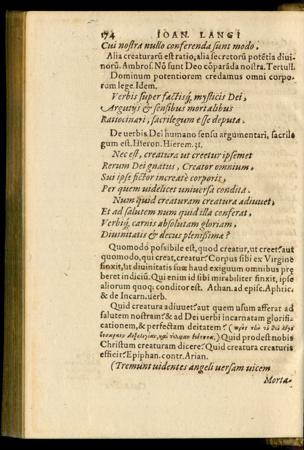 174 IOAN. LANGI
Cui nostra nullo conferenda sunt modo.
Alia creaturarũ est ratio, alia secretorũ potẽtia divi-
norũ. Ambros. Nõ sunt Deo cõparãda nostra. Tertull.
Dominum potentiorem credamus omni corpo-
rum lege. Idem.
Verbis super factisq́, mysticis Dei,
Argutijs & sensibus mortalibus
Ratiocinari, sacrilegum esse deputa.
De uerbis Dei humano sensu argumentari, sacrile
gum est. Hieron. Hierem. 31.
Nec est, creatura ut creetur ipsemet
Rerum Dei gnatus, Creator omnium,
Sui ipse fictor increatè corporis,
Per quem uidelicet uniuersa condita.
Num quid creaturam creatura adiuuet,
Et ad salutem num quid illa conferat,
Verbiq́, carnis absolutam gloriam,
Diuinitatis & decus plenissimæ?
Quomodo possibile est, quod creatur, ut creet: aut
quomodo, qui creat, creatur: Corpus sibi ex Virgine
finxit, ut diuinitatis suæ haud exiguum omnibus præ
beret indiciũ. Qui enim id sibi mirabiliter finxit, ipse
aliorum quoq; conditor est. Athan. ad episc. Aphric.
& de Incarn. uerb.
Quid creatura adiuuet: aut quem usum afferat ad
salutem nostram: & ad Dei uerbi incarnatam glorifi
cationem, & perfectam deitatem?
Quid prodest nobis
Christum creaturam dicere? Quid creatura creaturis
efficit? Epiphan. contr. Arian.
(Tremunt uidentes angeli uersam uicem
Morta-